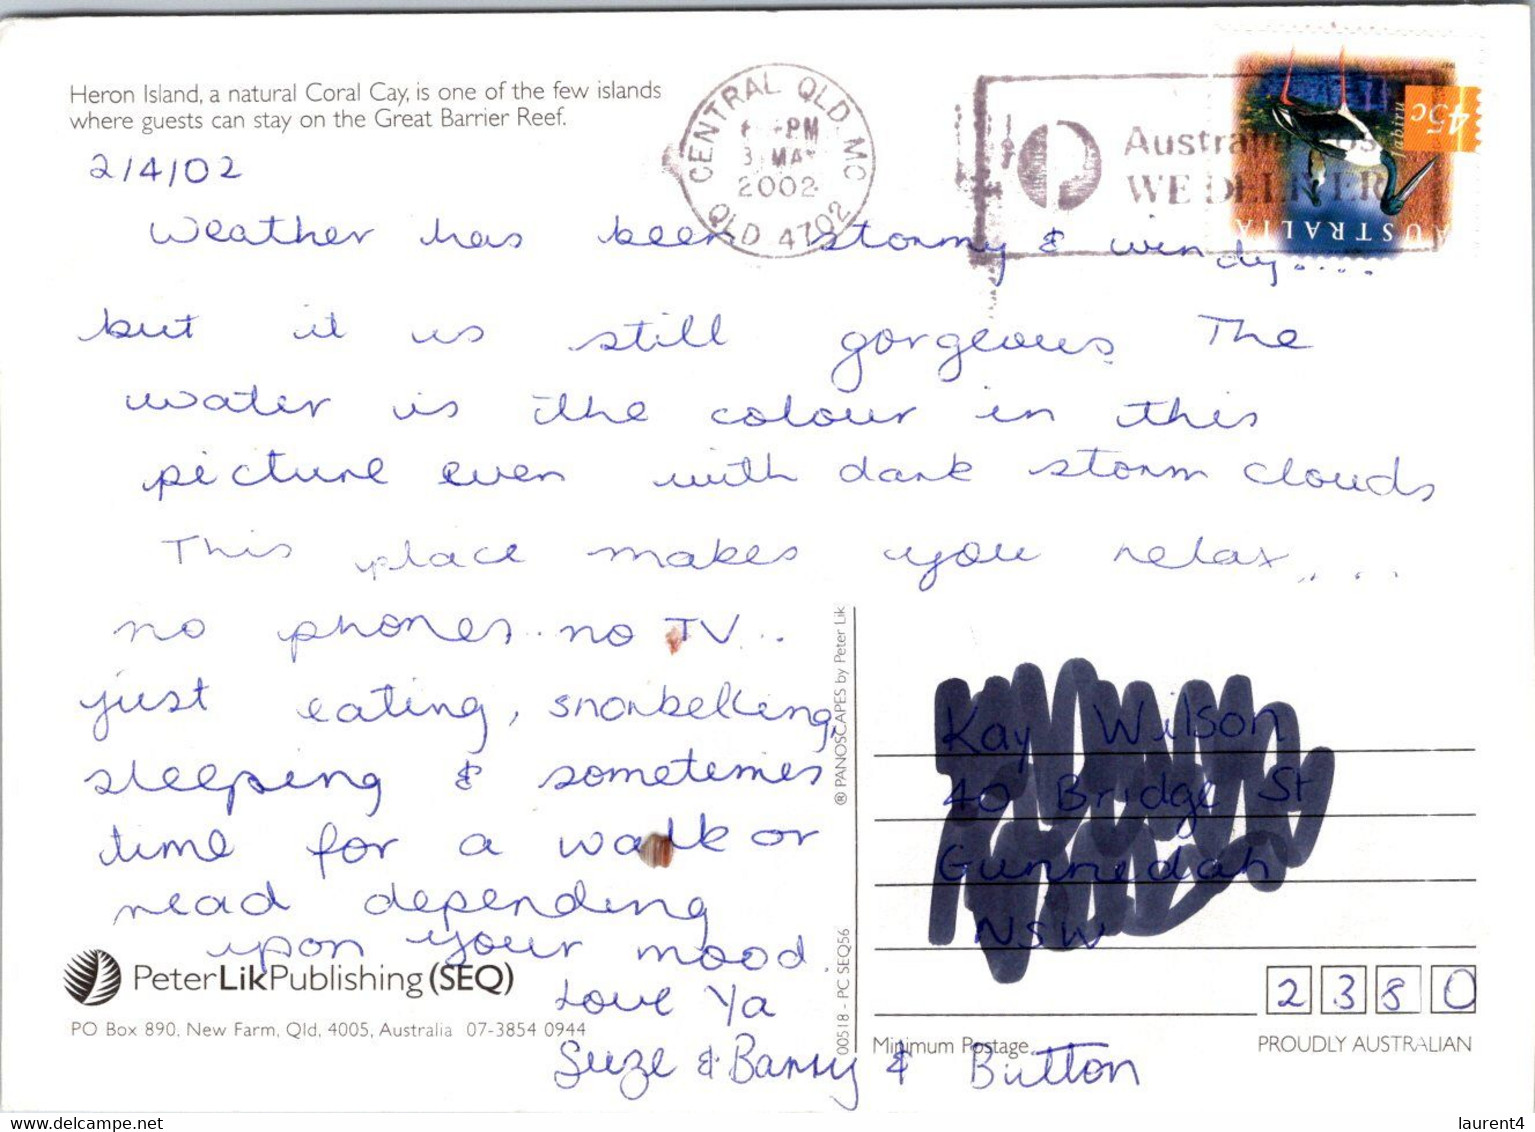 Heron Island, a natural Coral Cay, is one of the few islands
where guests can stay on the Great Barrier Reef.
2/4/02
CENTRAL QLD MC
PM
3 MAY
2002
QLD 4702
Australia Post
WE DELIVER
45c
AUSTRALIA
Weather has been stormy & windy.....
but it is still gorgeous The
water is the colour in this
picture even with dark storm clouds
This place makes you relax....
no phones.. no TV..
just eating, snorkelling,
sleeping & sometimes
time for a walk or
read depending
upon your mood.
Love Ya
Suze & Barry & Button
Peter Lik Publishing (SEQ)
PO Box 890, New Farm, Qld, 4005, Australia 07-3854 0944
® PANOSCAPES by Peter Lik
00518 - PC SEQ56
2380
Minimum Postage
PROUDLY AUSTRALIAN
www.delcampe.net
laurent4